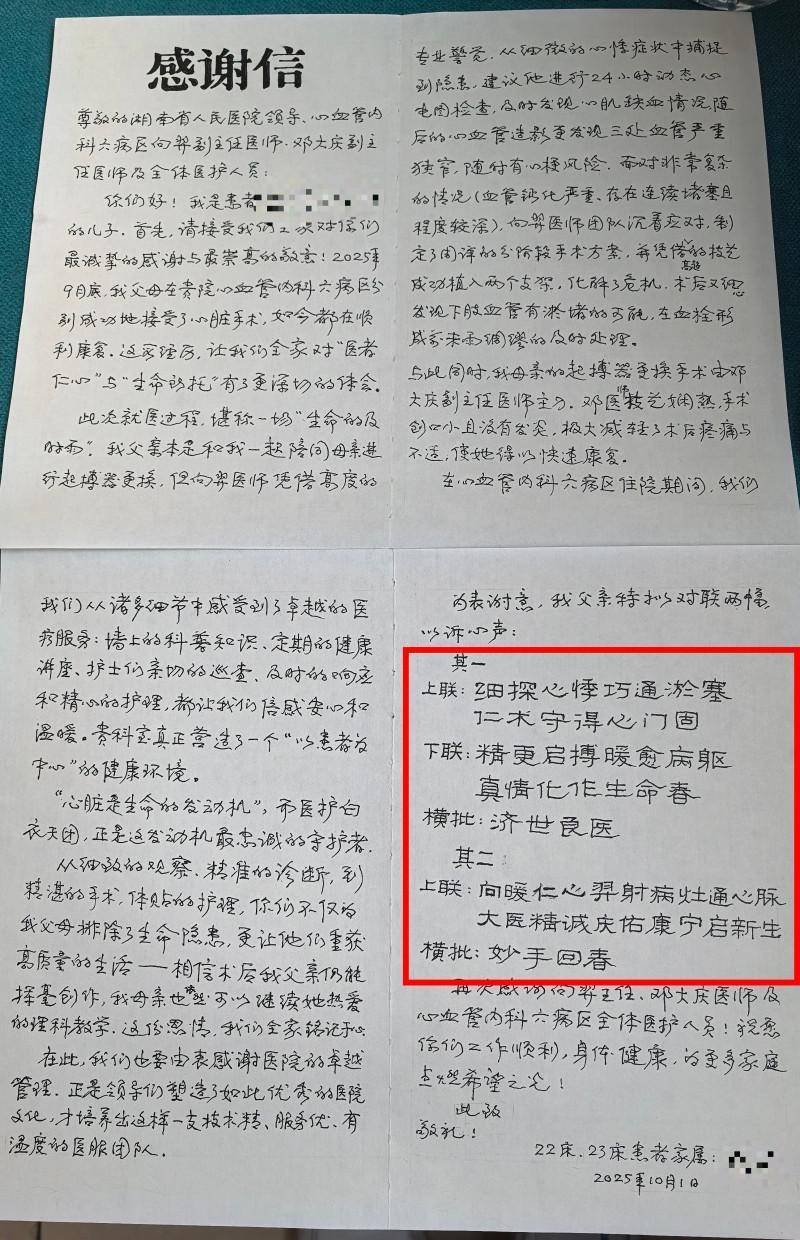 感谢信
尊敬的湖南省人民医院领导、心血管内
科六病区向羿副主任医师、邓大庆副主
任医师及全体医护人员:
你们好!我是患者
的儿子。首先,请接受我们对你们
最诚挚的感谢与最崇高的敬意!2025年
9月底,我父母在贵院心血管内科六病区分
别成功地接受了心脏手术,如今都在顺
利康复。这家经历,让我们全家对“医者
仁心”与“生命所托”有了更深切的体会。
此次就医过程,堪称一场“生命的及
时雨”。我父亲本是和我一起陪同母亲进
行起搏器更换,但向羿医师凭借高度的
专业警觉,从细微的心悸症状中捕捉
到隐患,建议他进行24小时动态心
电图检查,及时发现心肌缺血情况,随
后的心血管造影更发现三处血管严重
狭窄,随时有心梗风险。面对非常复杂
的情况(血管钙化严重、存在连续堵塞且
程度较深),向羿医师团队沉着应对,制
定了周详的分阶段手术方案,并凭借高超的技艺
成功植入两个支架,化解了危机。术后又细
发现下肢血管有淤堵的可能,在血栓形
成前未雨绸缪的及时处理。
与此同时,我母亲的起搏器更换手术由邓
大庆副主任医师主刀。邓医师技艺娴熟,手术
创口小且没有发炎,极大减轻了术后疼痛与
不适,使她得以快速康复。
在心血管内科六病区住院期间,我们
我们从诸多细节中感受到了卓越的医
疗服务:墙上的科普知识、定期的健康
讲座、护士们亲切的巡查、及时的响应
和精心的护理,都让我们倍感安心和
温暖。贵科室真正营造了一个“以患者为
中心”的健康环境。
“心脏是生命的发动机”,而医护白
衣天团,正是这发动机最忠诚的守护者。
从细致的观察、精准的诊断,到
精湛的手术,体贴的护理,你们不仅为
我父母排除了生命隐患,更让他们重获
高质量的生活——相信术后我父亲仍能
挥毫创作,我母亲也可以继续她热爱
的理科教学。这份恩情,我们全家铭记于心
在此,我们也要由衷感谢医院的卓越
管理。正是领导们塑造了如此优秀的医院
文化,才培养出这样一支技术精、服务优、有
温度的医服团队。
为表谢意,我父亲特拟对联两幅,
以诉心声:
其一
上联:细探心悸巧通淤塞
仁术守得心门固
下联:精更启搏暖愈病躯
真情化作生命春
横批:济世良医
其二:
上联:向暖仁心羿射病灶通心脉
大医精诚庆佑康宁启新生
横批:妙手回春
再次感谢向羿主任、邓大庆医师及
心血管内科六病区全体医护人员!祝愿
你们工作顺利,身体健康,为更多家庭
点燃希望之光!
此致
敬礼!
22床、23床患者家属:
2025年10月1日